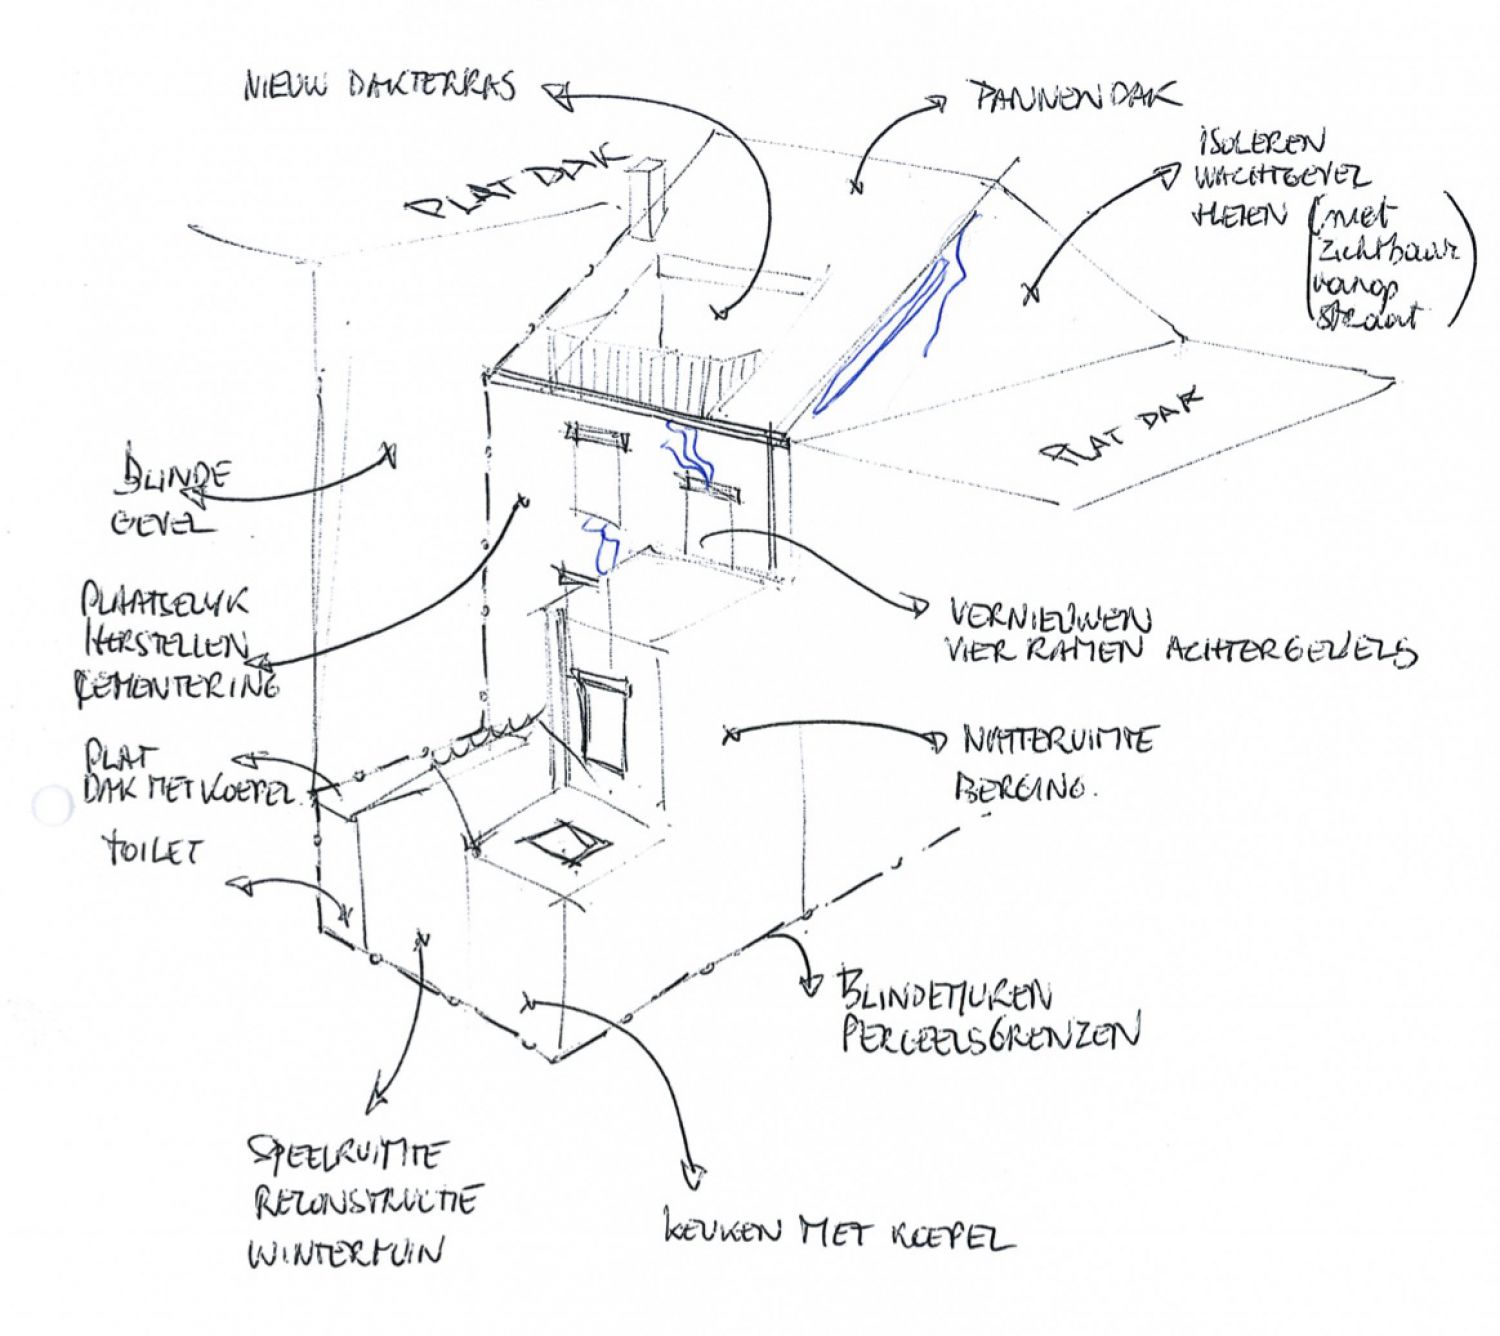 NIEUW DAKTERRAS
PANNENDAK
PLAT DAK
ISOLEREN
WACHTGEVEL
(niet
zichtbaar
vanop
straat)
PLAT DAK
BLINDE
GEVEL
PLAATSELIJK
HERSTELLEN
CEMENTERING
VERNIEUWEN
VIER RAMEN ACHTERGEVELS
PLAT
DAK MET KOEPEL
NATTERUIMTE
BERGING.
TOILET
BLINDEMUREN
PERCEELSGRENZEN
SPEELRUIMTE
RECONSTRUCTIE
WINTERTUIN
KEUKEN MET KOEPEL